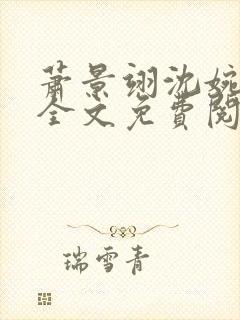 萧景翊沈婉
全文免費閱
瑞雪青